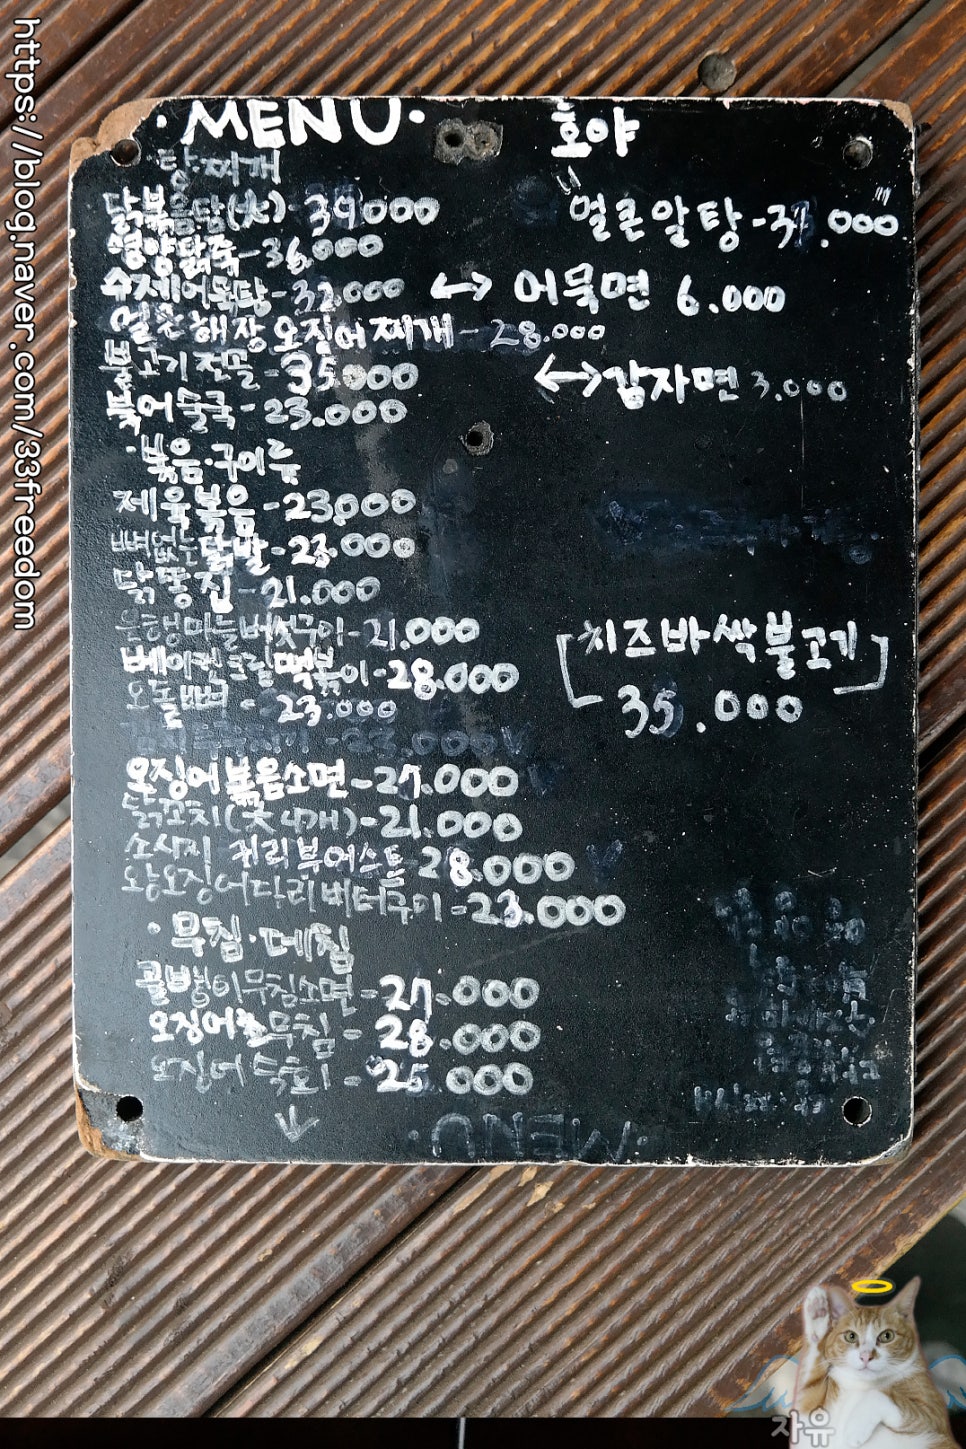 https://blog.naver.com/33freedom
·MENU·
호야
탕·찌개
닭볶음탕(大)-39.000
"얼큰알탕-37.000"
영양닭죽-36.000
수제어묵탕-32.000 ↔ 어묵면 6.000
얼큰해장오징어찌개-28.000
불고기전골-35.000
↔감자면 3.000
북어술국-23.000
·볶음·구이류
제육볶음-23.000
뼈없는닭발-23.000
닭똥집-21.000
은행마늘버섯구이-21.000
[치즈바싹불고기]
35.000
베이컨크림떡볶이-28.000
오돌뼈-23.000
오징어볶음소면-27.000
닭꼬치(大4개)-21.000
소시지 커리부어스트-28.000
왕오징어다리버터구이-23.000
·무침·데침
골뱅이무침소면-27.000
오징어초무침-28.000
오징어숙회-25.000
↓
·MENU·
자유